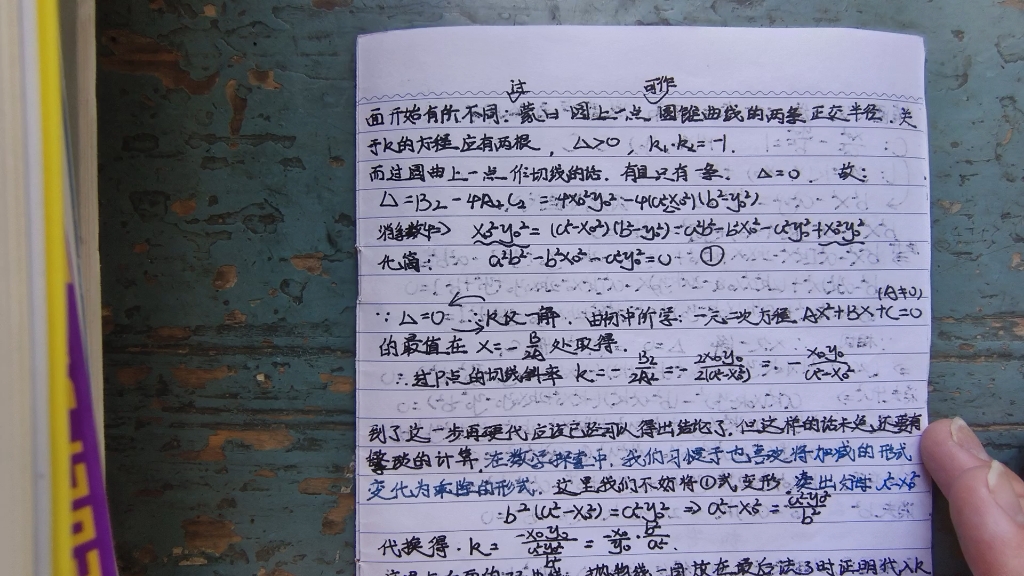 过 可作
面开始有所不同:蒙日圆上一点 圆锥曲线的两条正交半径,关
于k的方程应有两根,Δ>0,k₁·k₂=-1.
而过圆曲上一点作切线的话,有且只有一条.Δ=0.故:
Δ=B₂-4A₂C₂=4x₀²y₀²-4(a²-x₀²)(b²-y₀²)
x₀²y₀²=(a²-x₀²)(b²-y₀²)=a²b²-b²x₀²-a²y₀²+x₀²y₀²
化简: a²b²-b²x₀²-a²y₀²=0 ①
(A≠0)
∵Δ=0 ∴k仅一解.由初中所学:一元二次方程AX²+BX+C=0
的最值在 X=-B/2A 处取得.
∴过P点的切线斜率 k=-B₂/2A₂=-2x₀y₀/2(a²-x₀²)=-x₀y₀/a²-x₀²
到了这一步再硬代应该已经可以得出结论了,但这样的话未免还要有
繁琐的计算.在数学探索中,我们习惯于也喜欢将加减的形式
变化为乘除的形式.这里我们不妨将①式变形 a²-x₀²
b²(a²-x₀²)=a²y₀² ⇒ a²-x₀²=a²y₀²/b²
代换得.k=-x₀y₀/(a²y₀²/b²)=-x₀/y₀·b²/a².